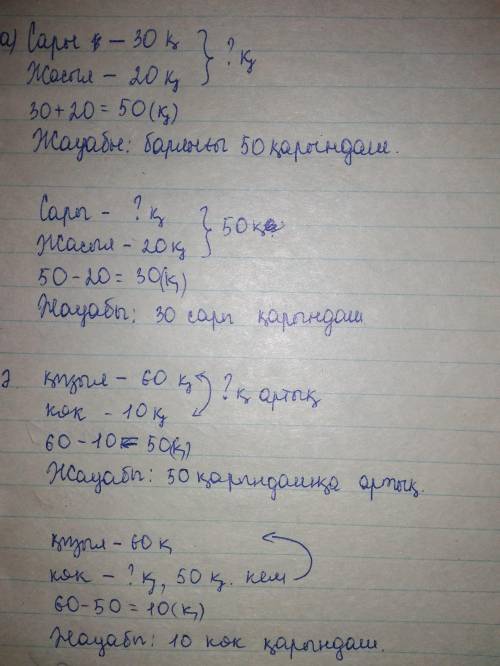 а) Сары – 30 қ
Жасыл – 20 қ } ? қ
30+20 = 50 (қ)
Жауабы: барлығы 50 қарындаш.
Сары – ? қ
Жасыл – 20 қ } 50 қ
50-20 = 30 (қ)
Жауабы: 30 сары қарындаш
қызыл – 60 қ
көк – 10 қ ? қ артық
60-10 = 50 (қ)
Жауабы: 50 қарындашқа артық.
қызыл – 60 қ
көк – ? қ, 50 қ. кем
60-50 = 10 (қ)
Жауабы: 10 көк қарындаш.